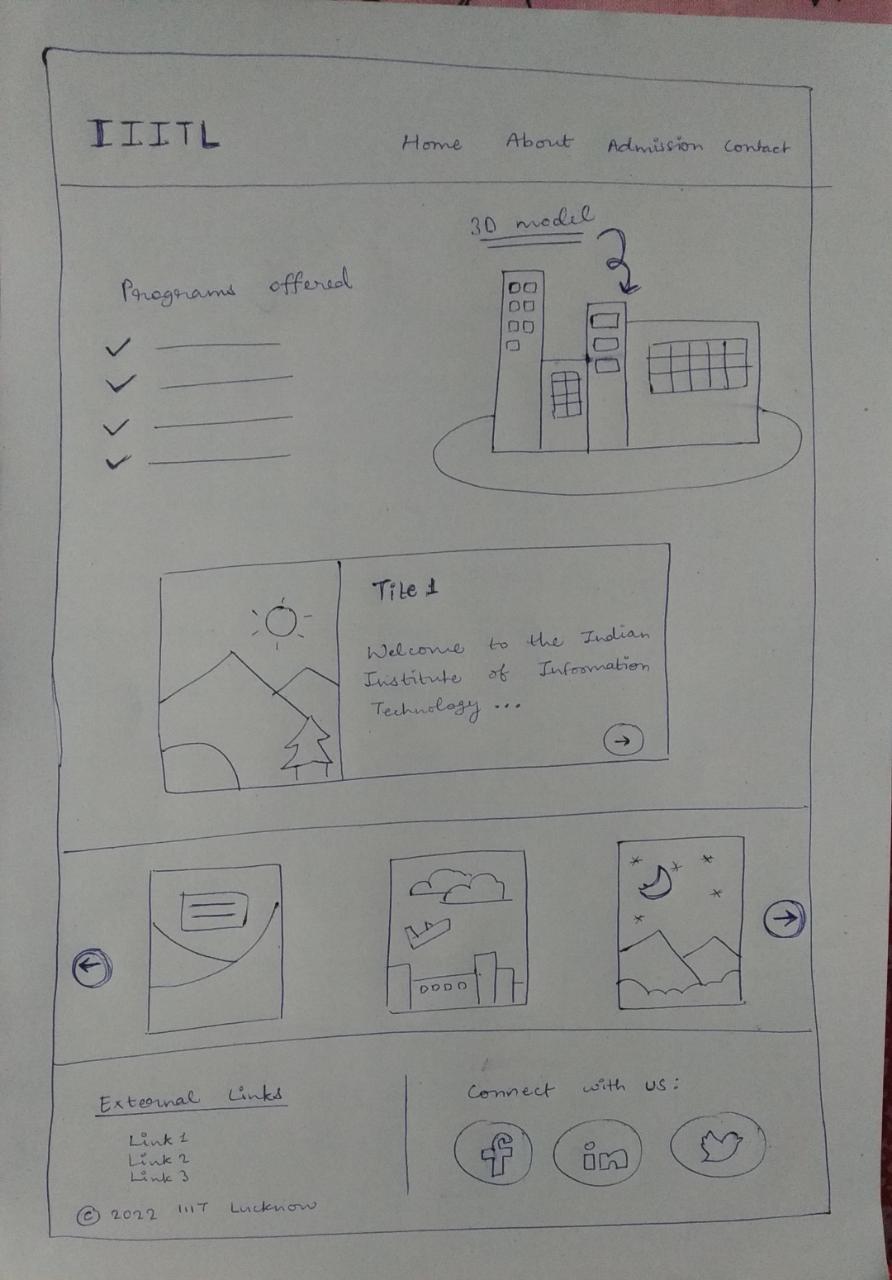 IIITL
Home About Admission Contact
3D model
Programs offered
Title 1
Welcome to the Indian
Institute of Information
Technology ...
External Links
Link 1
Link 2
Link 3
© 2022 IIIT Lucknow
Connect with us:
f in